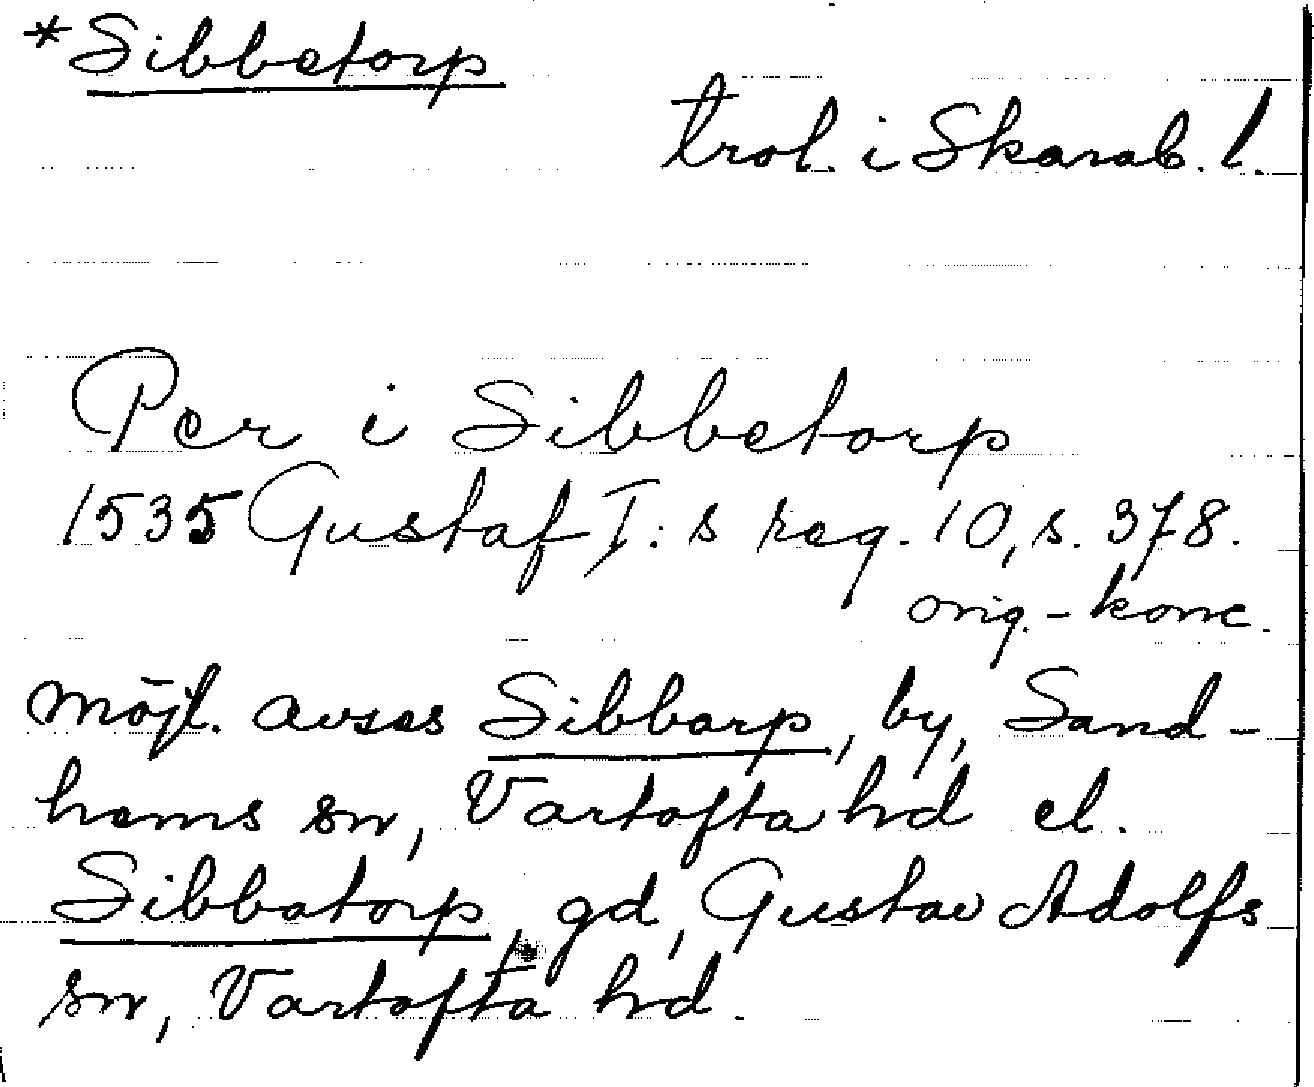 *Sibbetorp
trol. i Skarab. l.
Per i Sibbetorp
1535 Gustaf I:s reg. 10, s. 378.
orig.-konc.
möjl. avses Sibbarp, by, Sand-
hems sn, Vartofta hd el.
Sibbatorp, gd, Gustav Adolfs
sn, Vartofta hd.